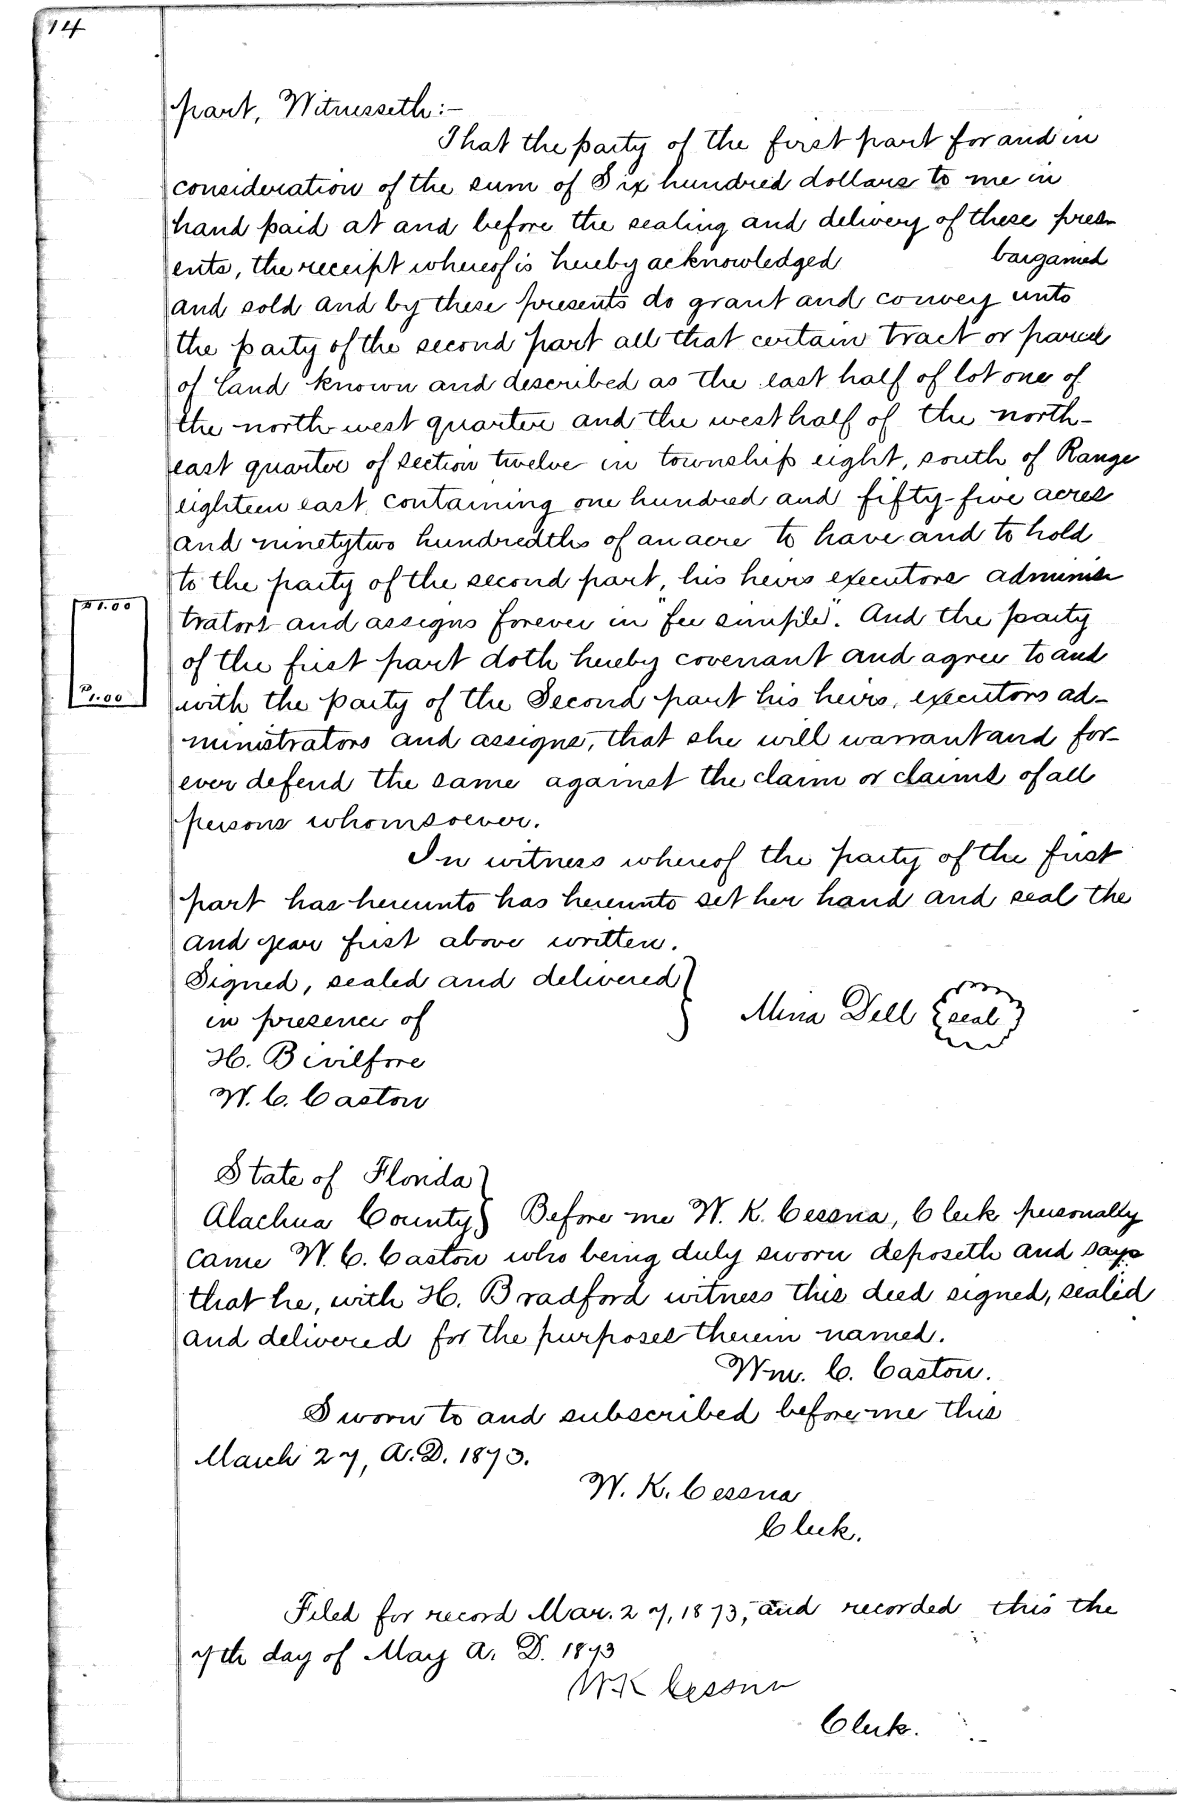 14
part, Witnesseth:-
That the party of the first part for and in
consideration of the sum of Six hundred dollars to me in
hand paid at and before the sealing and delivery of these pres-
ents, the receipt whereof is hereby acknowledged bargained
and sold and by these presents do grant and convey unto
the party of the second part all that certain tract or parcel
of land known and described as the east half of lot one of
the north-west quarter and the west half of the north-
east quarter of section twelve in township eight, south of Range
eighteen east containing one hundred and fifty-five acres
and ninety two hundredths of an acre to have and to hold
to the party of the second part, his heirs executors adminis
trators and assigns forever in "fee simple". And the party
$1.00
of the first part doth hereby covenant and agree to and
1.00
with the party of the Second part his heirs, executors ad-
ministrators and assigns, that she will warrant and for-
ever defend the same against the claim or claims of all
persons whomsoever.
In witness whereof the party of the first
part has hereunto has hereunto set her hand and seal the
and year first above written.
Signed, sealed and delivered }
in presence of
Mina Dell {seal}
H. Bivilfore
W. C. Caston
State of Florida }
Alachua County } Before me W. K. Cessna, Clerk personally
came W. C. Caston who being duly sworn deposeth and says
that he, with H. Bradford witness this deed signed, sealed
and delivered for the purposes therein named.
Wm. C. Caston.
Sworn to and subscribed before me this
March 27, A.D. 1873.
W. K. Cessna
Clerk.
Filed for record Mar. 27, 1873, and recorded this the
7th day of May A. D. 1873
W K Cessna
Clerk.